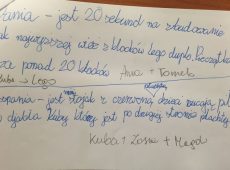 rania - jest 20 sekund na zbudowanie
ak najwyższej wieży z klocków lego duplo. Początk
za ponad 20 klocków Ania + Tomek
Kuba → Lego
pania - jest stojak z czerwoną
diabła Kuby który jest po drugiej stronie płachty
Kuba + Zosia + Magda